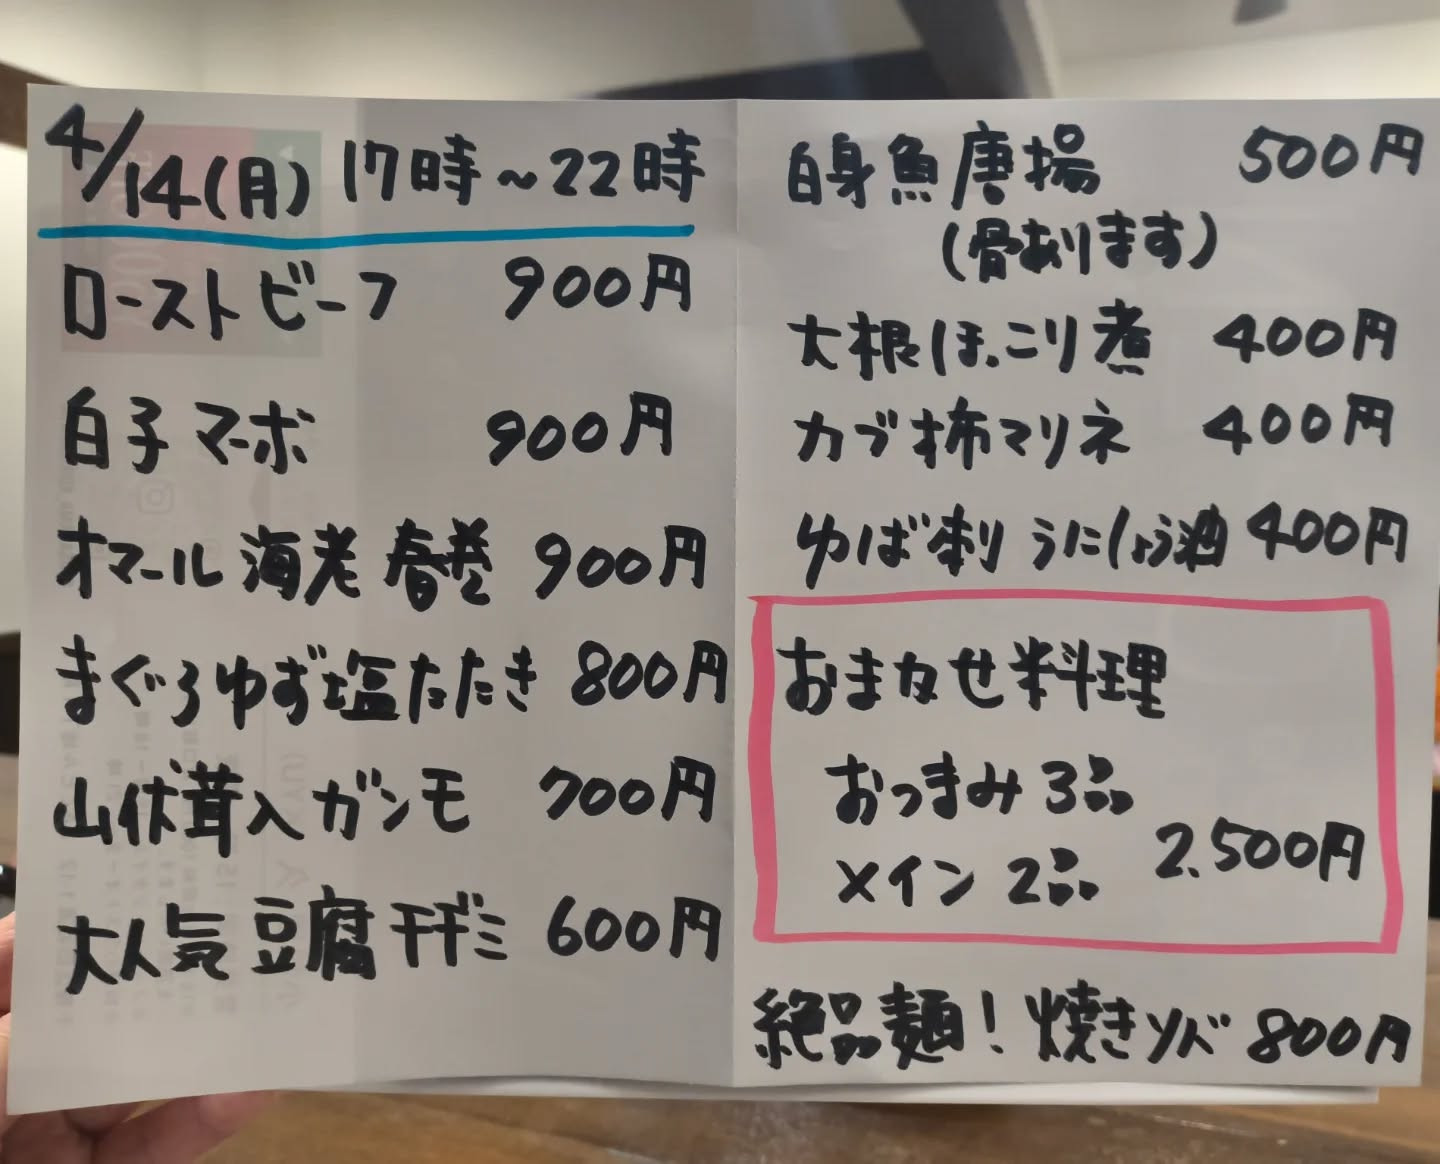 4/14(月) 17時~22時
ローストビーフ 900円
白子マーボ 900円
オマール海老春巻 900円
まぐろゆず塩たたき 800円
山伏茸入ガンモ 700円
大人気豆腐干ギミ 600円
白身魚唐揚 500円
(骨あります)
大根ほっこり煮 400円
カブ柿マリネ 400円
ゆば刺 うにしょう油 400円
おまかせ料理
おつまみ 3品
メイン 2品 2,500円
絶品麺!焼きソバ 800円